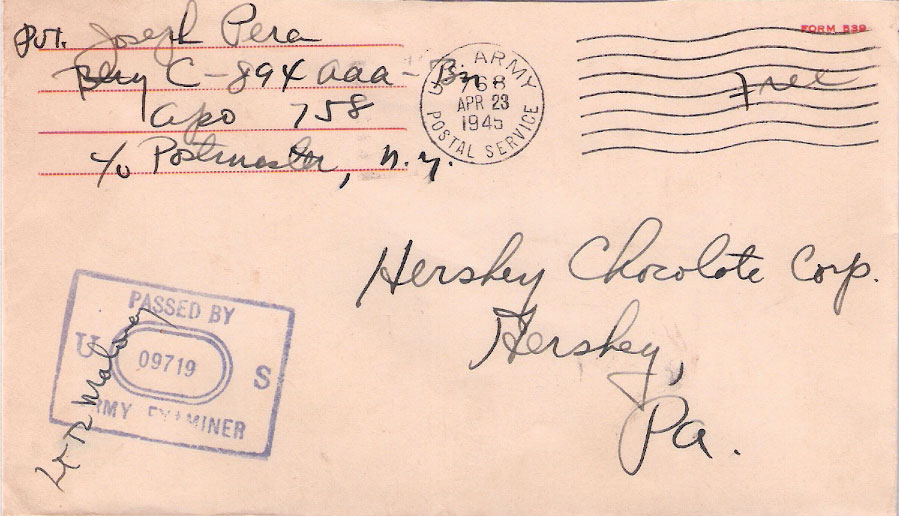 Pvt. Joseph Pera
Btry C-894 aaa-Bn-
apo 758
c/o Postmaster, n.y.
U.S. ARMY
768
APR 23
1945
POSTAL SERVICE
FORM 539
Free
Hershey Chocolate Corp.
Hershey,
Pa.
PASSED BY
U S
09719
ARMY EXAMINER